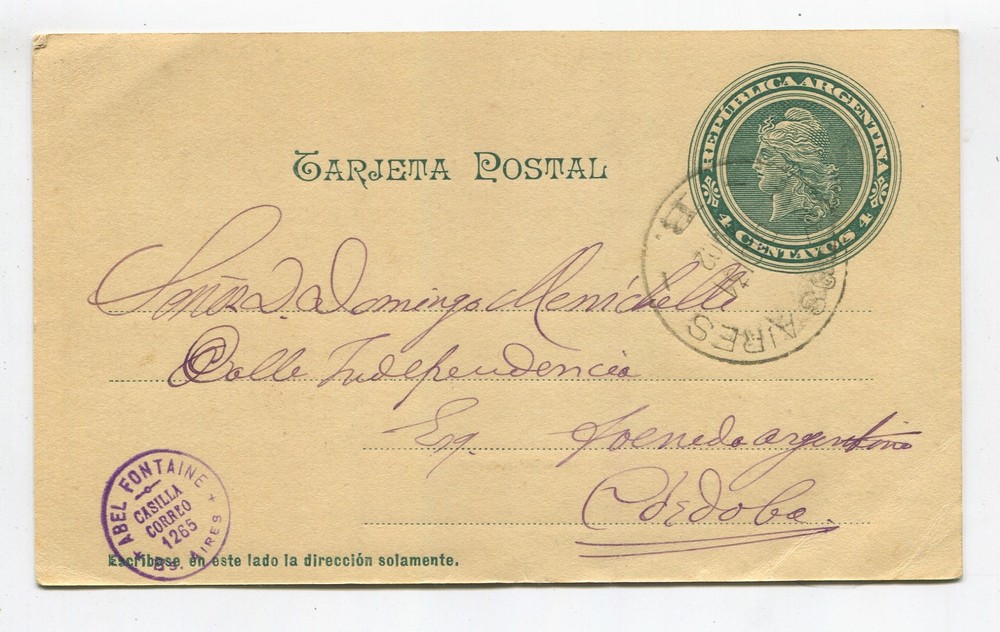 REPÚBLICA ARGENTINA
4 CENTAVOS 4
TARJETA POSTAL
B.
AIRES
Señor D. Domingo Menichelli
Calle Independencia
Esq. argentino
Córdoba.
ABEL FONTAINE
CASILLA
CORREO
1265
Bs. AIRES
Escríbase en este lado la dirección solamente.